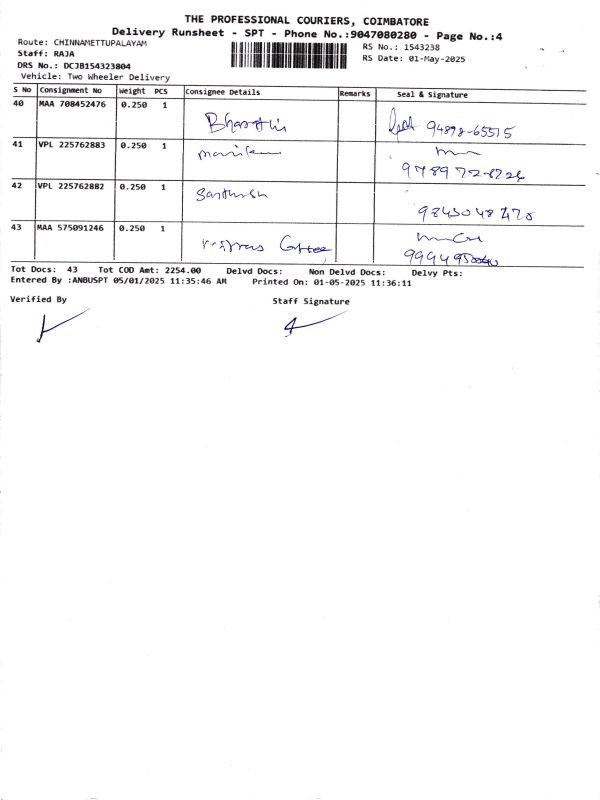 THE PROFESSIONAL COURIERS, COIMBATORE
Delivery Runsheet - SPT - Phone No.:9047080280 - Page No.:4
Route: CHINNAMETTUPALAYAM
Staff: RAJA
DRS No.: DCJB154323804
Vehicle: Two Wheeler Delivery
RS No.: 1543238
RS Date: 01-May-2025
S No Consignment No Weight PCS Consignee Details Remarks Seal & Signature
40 MAA 708452476 0.250 1 Bharathi 94898-65515
41 VPL 225762883 0.250 1
42 VPL 225762882 0.250 1 Santhosh
43 MAA 575091246 0.250 1
Tot Docs: 43 Tot COD Amt: 2254.00 Delvd Docs: Non Delvd Docs: Delvy Pts:
Entered By :ANBUSPT 05/01/2025 11:35:46 AM Printed On: 01-05-2025 11:36:11
Verified By Staff Signature